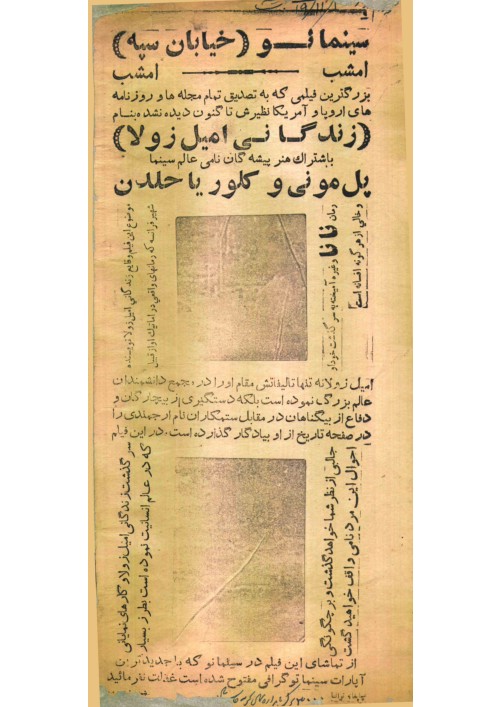 سینما نــو (خیابان سپه)
امشب امشب
بزرگترین فیلمی که به تصدیق تمام مجله ها و روزنامه
های اروپا و آمریکا نظیرش تا کنون دیده نشده بنام
(زندگــانــی امیل زولا)
باشتراك هنر پیشه گان نامی عالم سینما
پل مونی و کلوریا حلدن
موضوع این فیلم وقایع زندگانی امیل زولا نویسنده
شهیر فرانسه که رمانهای واقعی دراماتیك او از قبیل
رمان نانا
وغیره آمیخته به سرگذشت خود او
وخالی از هر گونه افسانه است
امیل زولا نه تنها تالیفاتش مقام اورا در مجمع دانشمندان
عالم بزرگ نموده است بلکه دستگیری از بیچارگان و
دفاع از بیگناهان در مقابل ستمکاران نام ارجمندی را
در صفحه تاریخ از او بیادگار گذارده است. در این فیلم
سرگذشت زندگانی امیل زولا و کارهای نمایانی
که در عالم انسانیت نموده است بطرز بسیار
جالبی از نظر شما خواهد گذشت و بر چگونگی
احوال این مرد نامی واقف خواهید گشت
از تماشای این فیلم در سینما نو که با جدیدترین
آپارات سینما تو گرافی مفتوح شده است غفلت نفرمائید